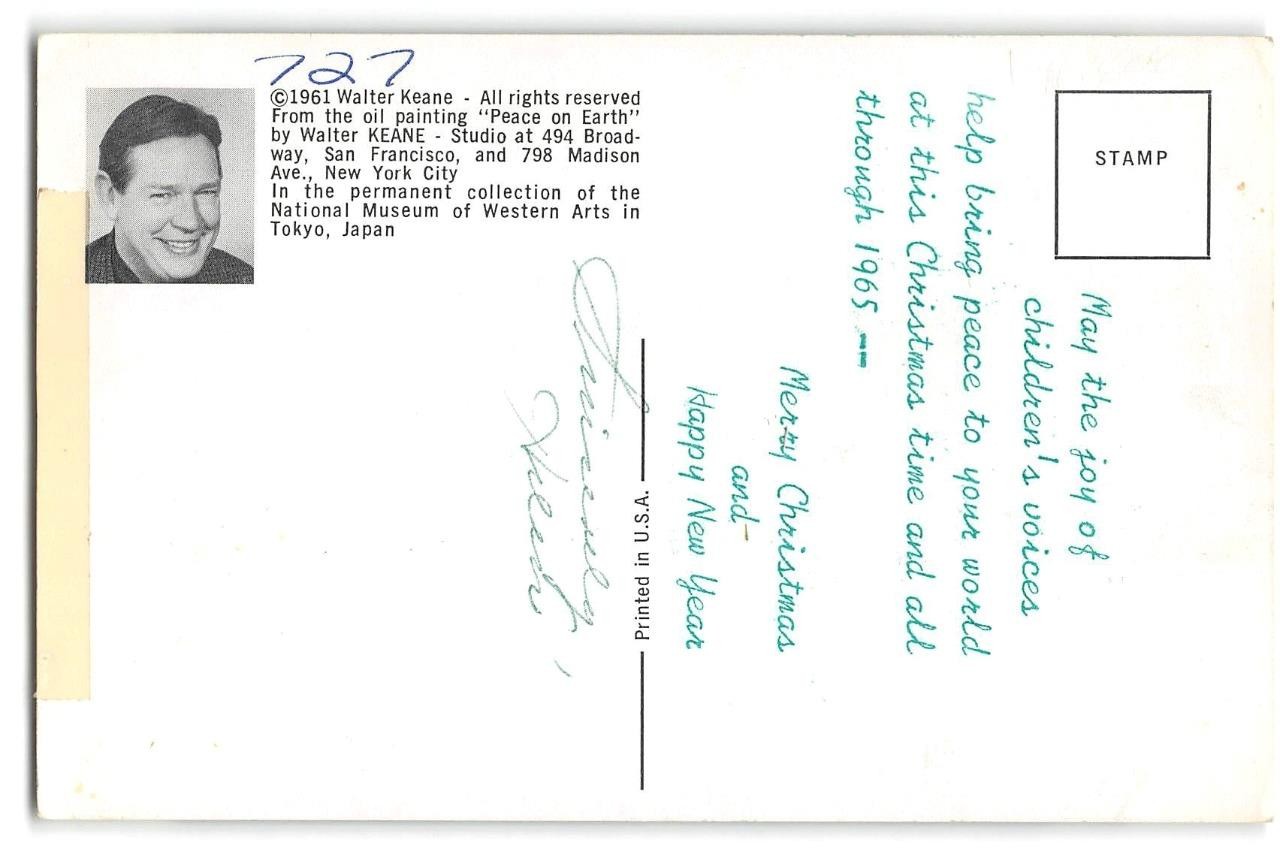 727
©1961 Walter Keane - All rights reserved
From the oil painting "Peace on Earth"
by Walter KEANE - Studio at 494 Broad-
way, San Francisco, and 798 Madison
Ave., New York City
In the permanent collection of the
National Museum of Western Arts in
Tokyo, Japan
STAMP
May the joy of
children's voices
help bring peace to your world
at this Christmas time and all
through 1965 --
Merry Christmas
and
Happy New Year
Sincerely,
Printed in U.S.A.